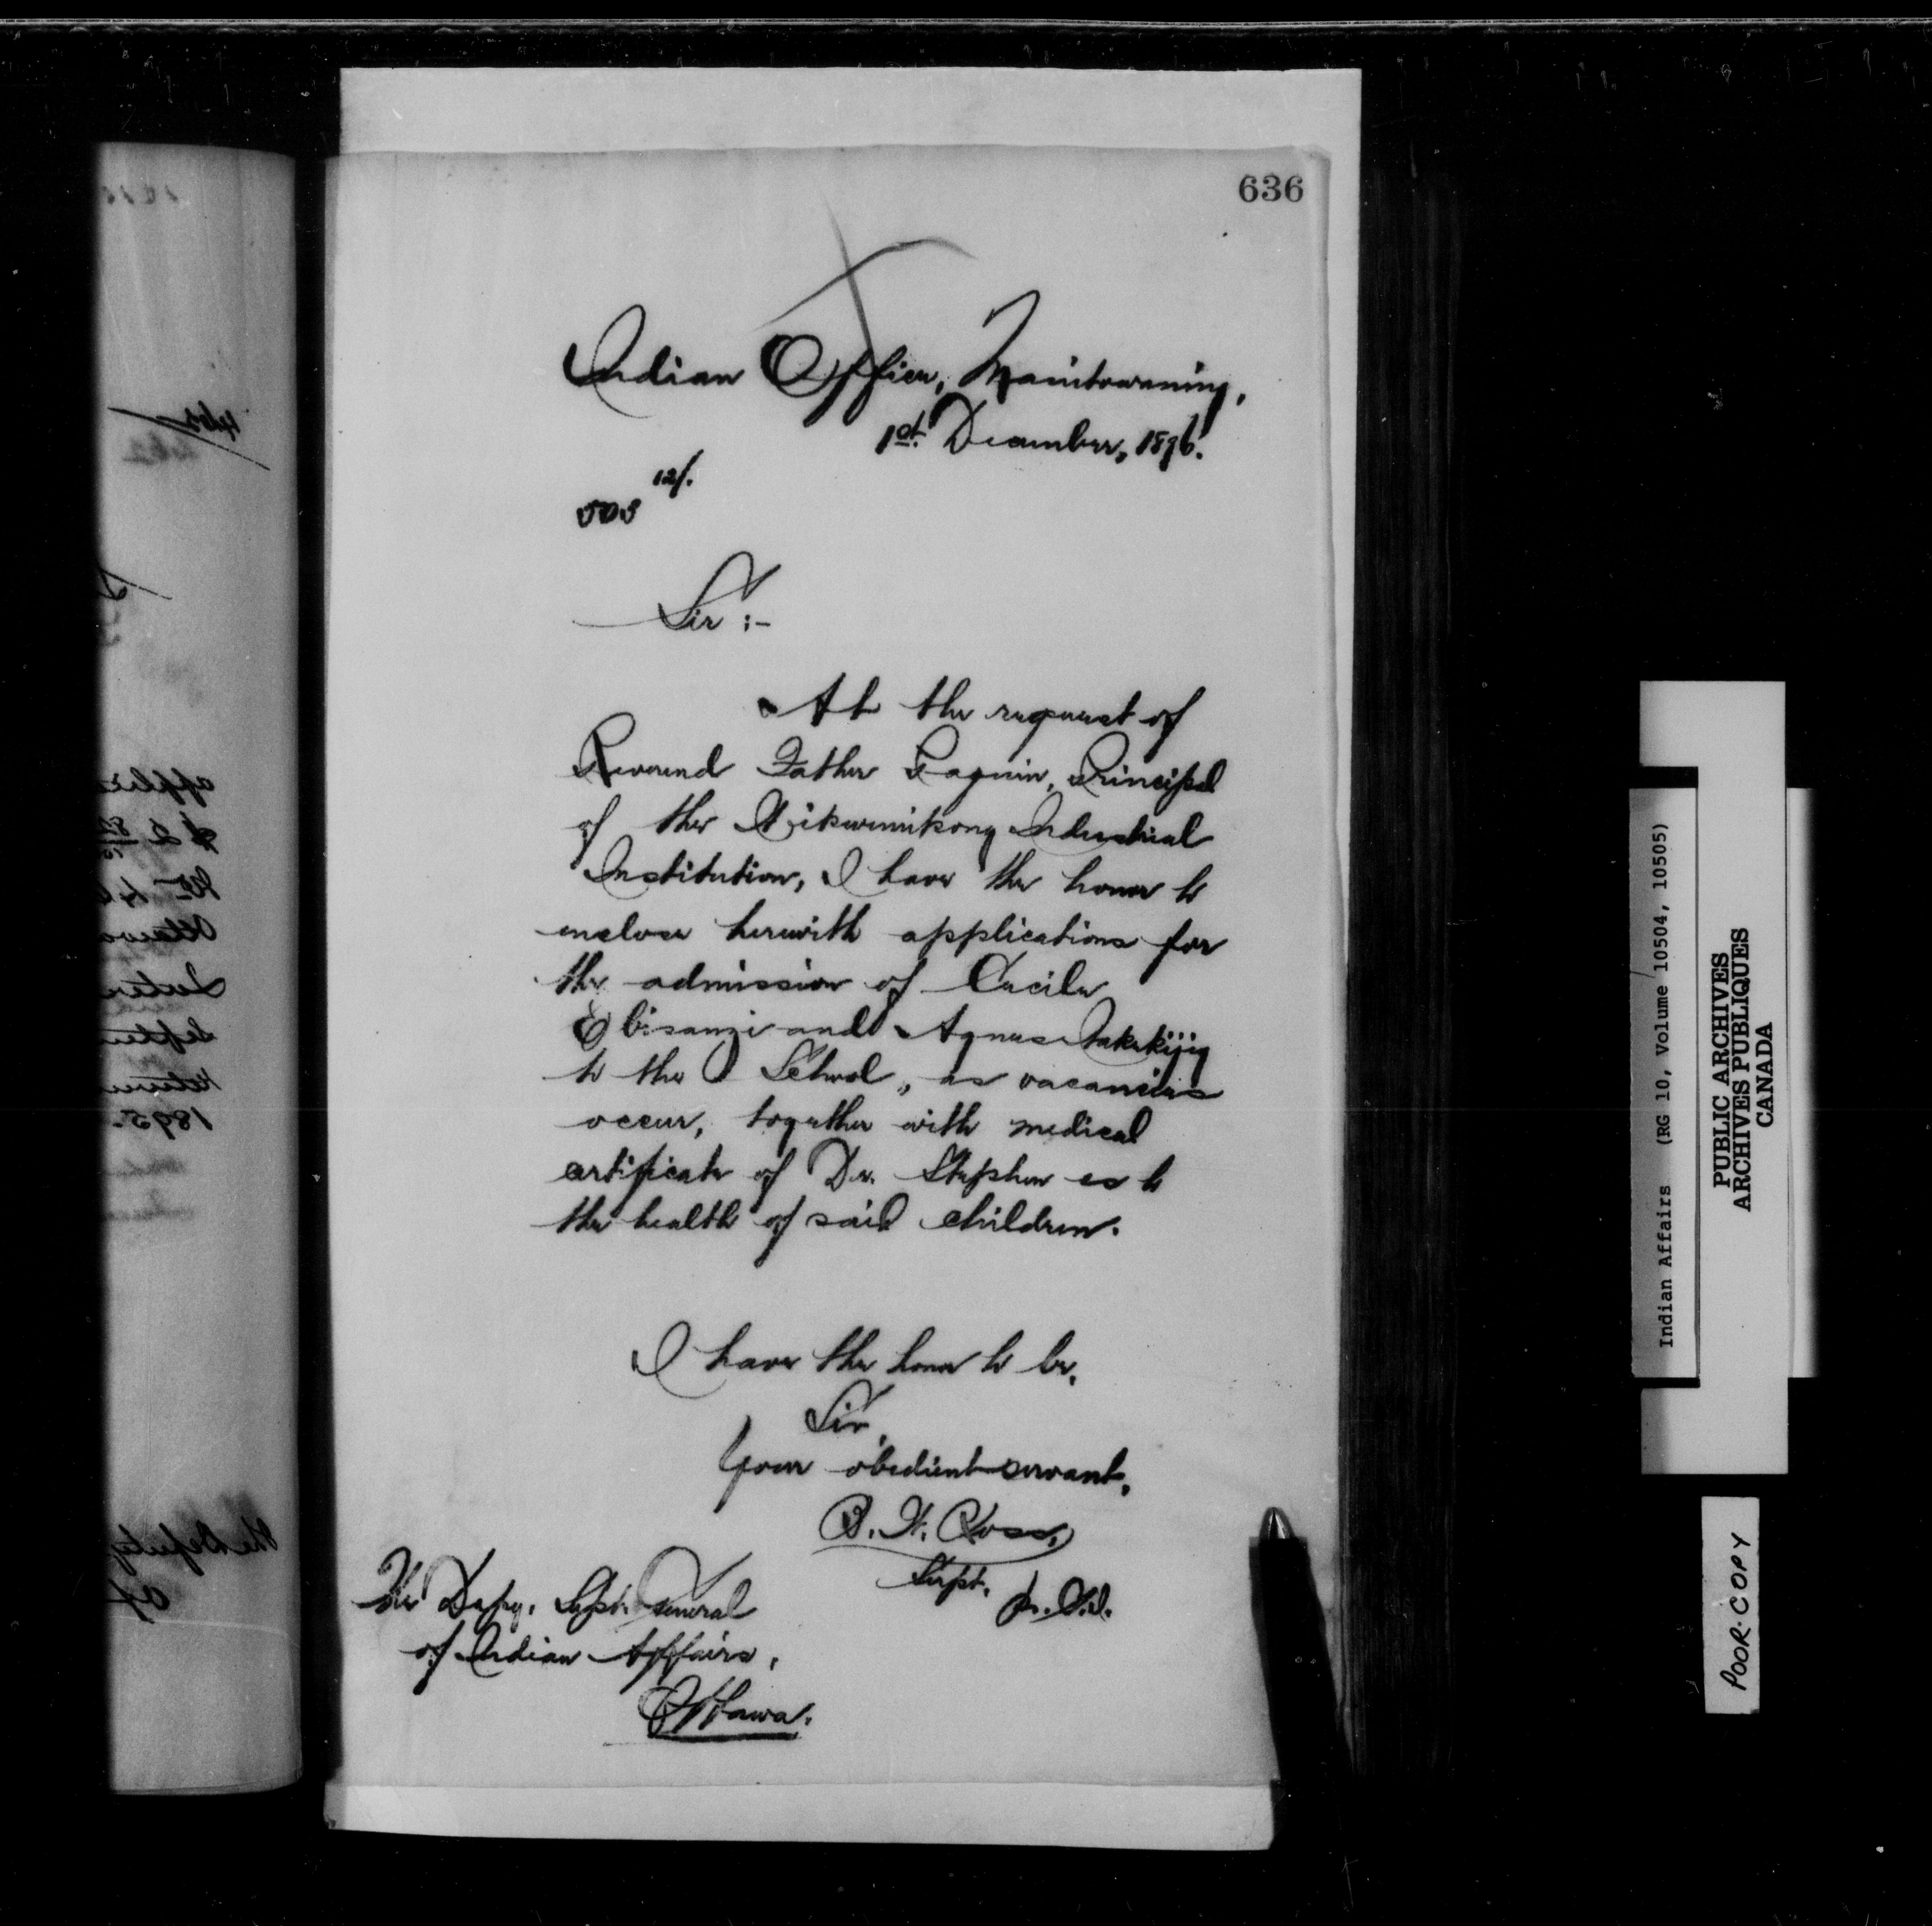 636
Indian Office, Manitowaning,
1st. December, 1896.
12/.
503
Sir :-
At the request of
Reverend Father Paquin, Principal
of the Wikwemikong Industrial
Institution, I have the honor to
enclose herewith applications for
the admission of Cecile
Ebisanzi and Agnes
to the School, as vacancies
occur, together with medical
certificate of Dr. Stephen as to
the health of said children.
I have the honor to be,
Sir,
Your obedient servant,
B. W. Ross,
Supt.
The Depy. Supt. General
of Indian Affairs,
Ottawa.
Indian Affairs (RG 10, Volume 10504, 10505)
PUBLIC ARCHIVES
ARCHIVES PUBLIQUES
CANADA
POOR COPY